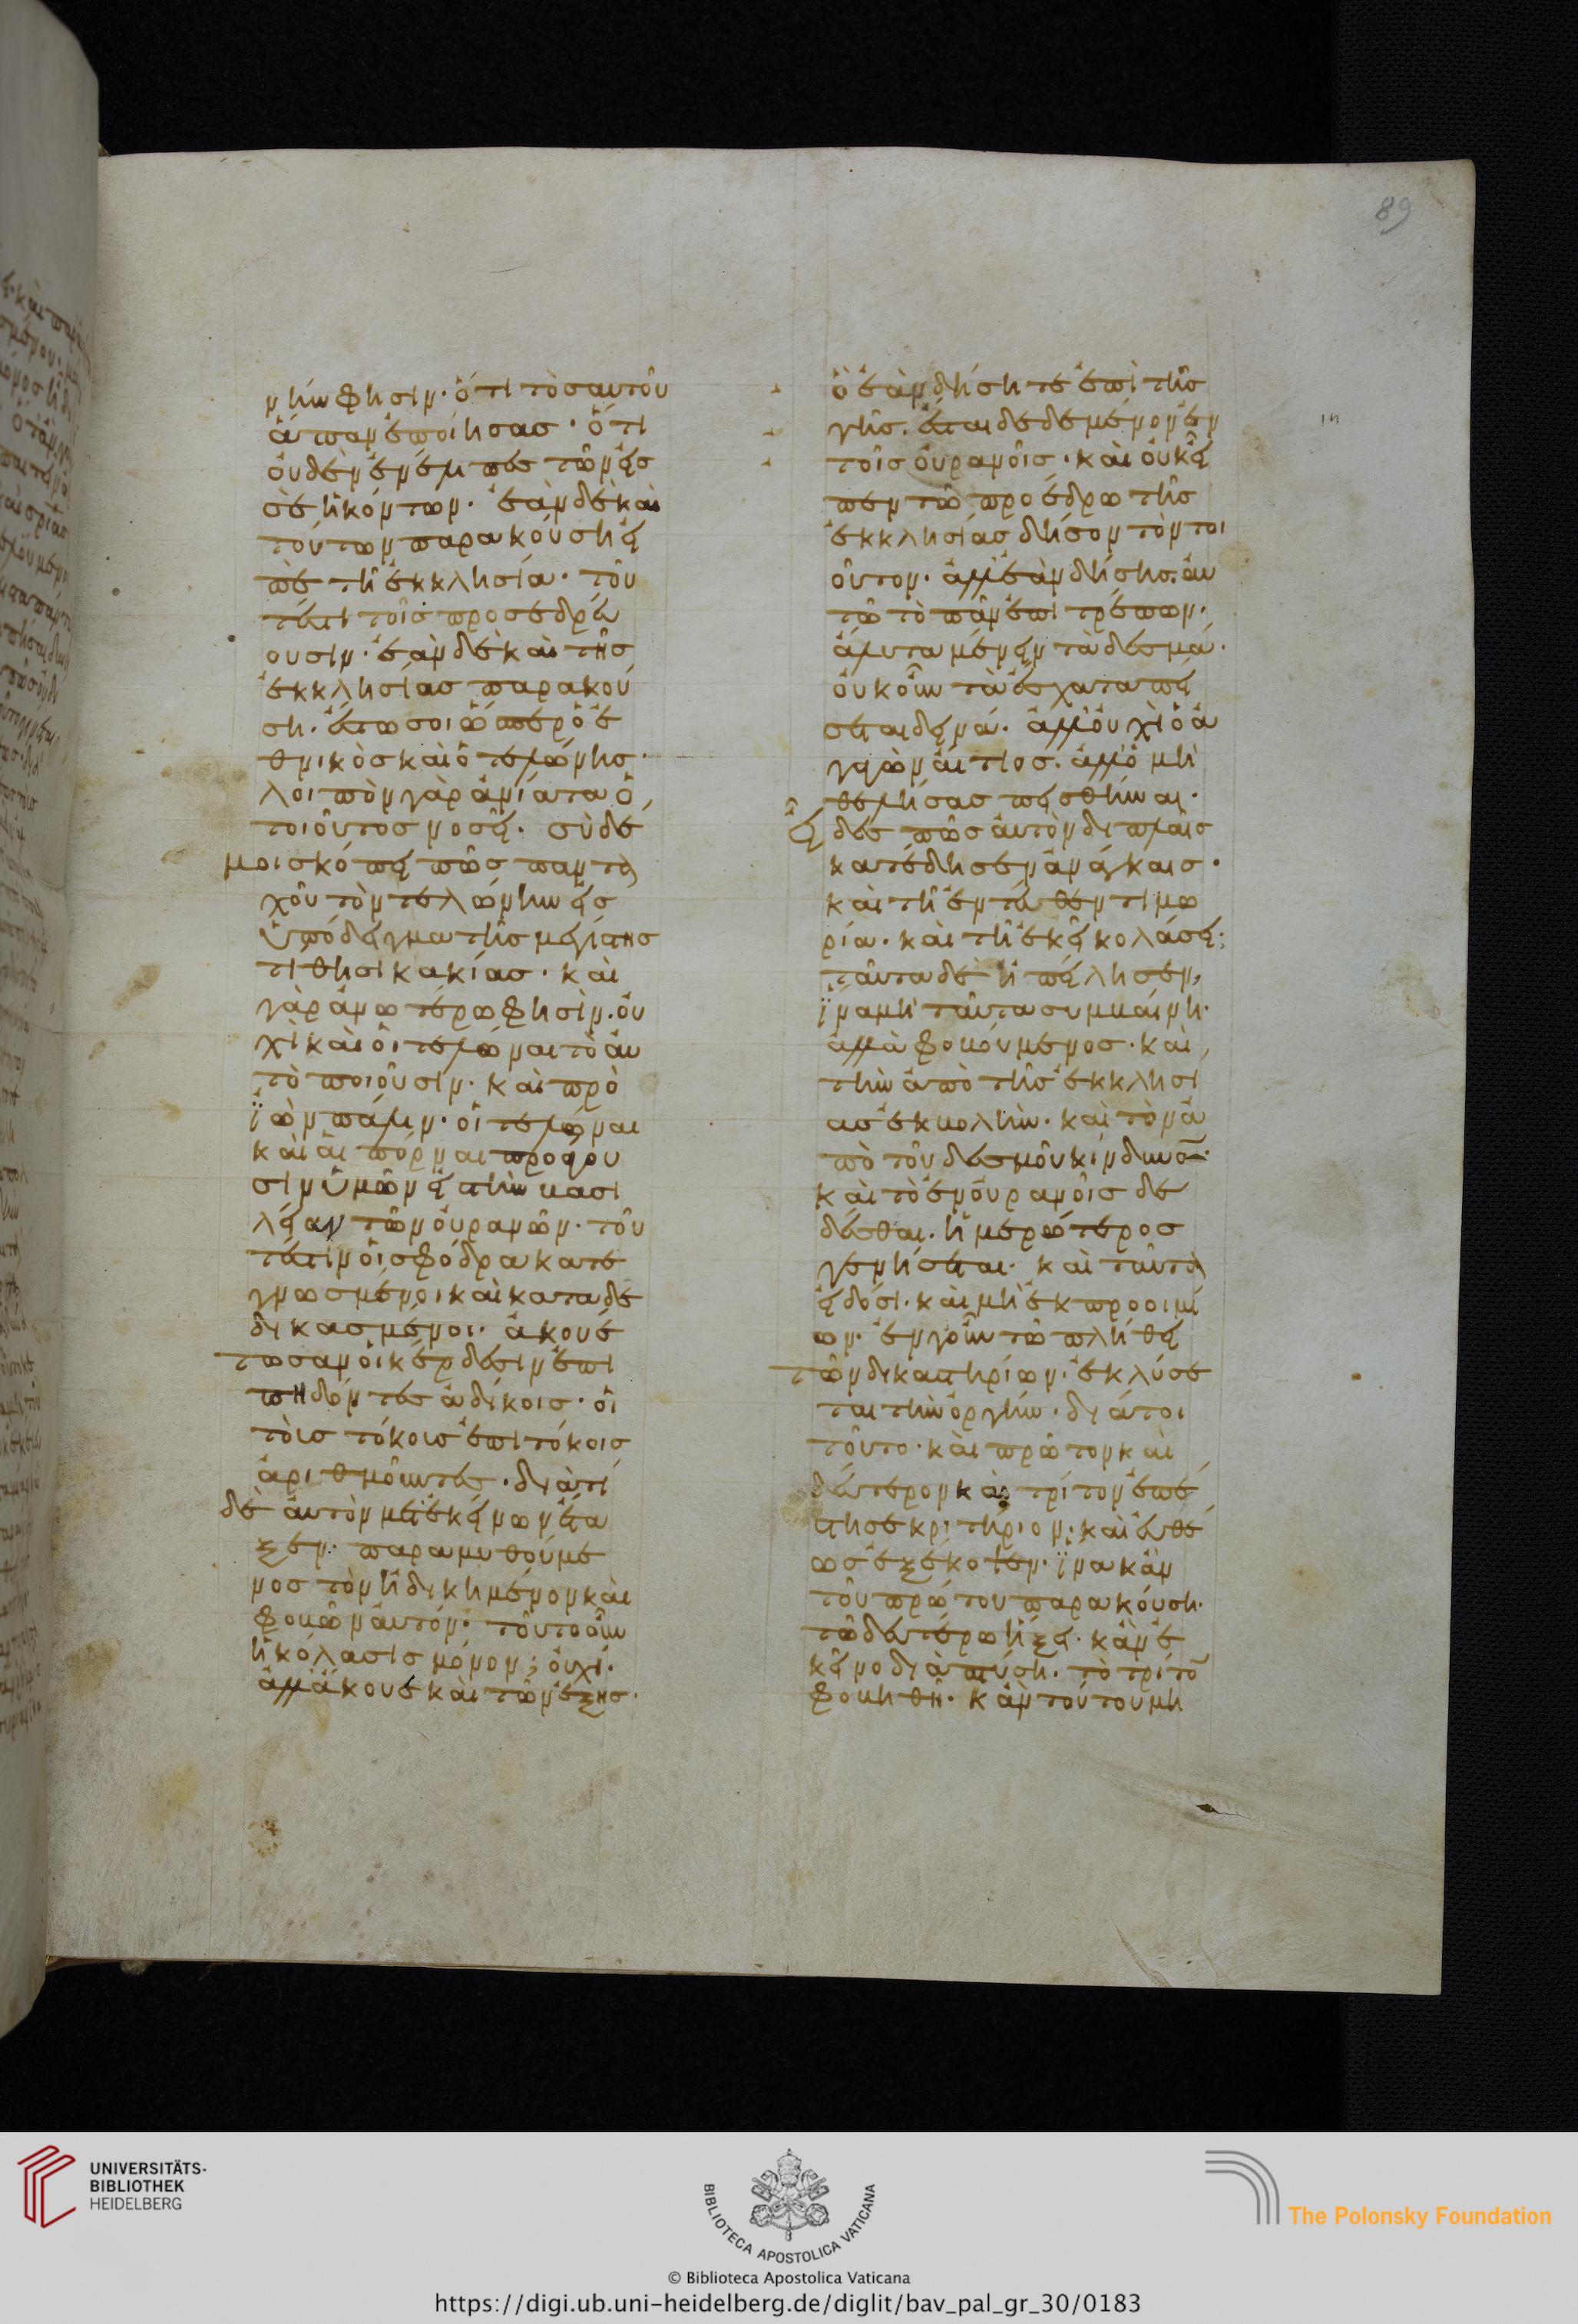 μὴν φησίν. ὅτι τὸ σαυτοῦ
ἅπαν ἐποίησας. ὅτι
οὐδὲν ἐνέλιπες τῶν εἰς
σὲ ἡκόντων. ἐὰν δὲ καὶ
τούτων παρακούση εἰ
πὲ τῆ ἐκκλησία. του
τέστι τοῖς προσεδρεύ
ουσιν. ἐὰν δὲ καὶ τῆς
ἐκκλησίας παρακού
ση. ἔστω σοι ὥσπερ ὁ ἐ
θνικὸς καὶ ὁ τελώνης.
λοιπὸν γὰρ ἀνίατα ὁ
τοιοῦτος νοσεῖ. σὺ δέ
μοι σκόπει πῶς παντα
χοῦ τὸν τελώνην εἰς
ὑπόδειγμα τῆς μεγίστης
τίθησι κακίας. καὶ
γὰρ ἀνωτέρω φησὶν. οὐ
χὶ καὶ οἱ τελῶναι τὸ αὐ
τὸ ποιοῦσιν. καὶ προ
ϊὼν πάλιν. οἱ τελῶναι
καὶ αἱ πόρναι προάγου
σιν ὑμῶν εἰς τὴν βασι
λείαν τῶν οὐρανῶν. του
τέστιν οἱ σφόδρα κατε
γνωσμένοι καὶ καταδε
δικασμένοι. ἀκουέ
τωσαν οἱ κέρδεσιν ἐπι
πηδῶντες ἀδίκοις. οἱ
τοῖς τόκοις ἐπὶ τόκοις
ἀριθμοῦντες. διατί
δὲ αὐτὸν μετ' ἐκείνων ἔτα
ξεν. παραμυθούμε
νος τὸν ἠδικημένον καὶ
φοβῶν αὐτόν. τοῦτο οὖν
ἡ κόλασις μόνον; οὐχί.
ἀλλ' ἄκουε καὶ τῶν ἑξῆς.
ὃ ἐὰν δήσητε ἐπὶ τῆς
γῆς. ἔσται δεδεμένον ἐν
τοῖς οὐρανοῖς. καὶ οὐκ εἶ
πεν τῶ προέδρω τῆς
ἐκκλησίας δῆσον τὸν τοι
οῦτον. ἀλλ' ἐὰν δήσης. αὐ
τῶ τὸ πᾶν ἐπιτρέπων.
ἄλυτα μένειν τὰ δεσμά.
οὐκοῦν τὰ ἔσχατα πεί
σεται δεινά. ἀλλ' οὐχὶ ὁ ἀ
γαγὼν αἴτιος. ἀλλ' ὁ μὴ
θελήσας πεισθῆναι.
εἶδες πῶς αὐτὸν διπλαῖς
κατέδησεν ἀνάγκαις.
καὶ τῆ ἐντεῦθεν τιμω
ρία. καὶ τῆ ἐκεῖ κολάσει;
ταῦτα δὲ ἠπείλησεν,
ἵνα μὴ ταῦτα συμβαίνη.
ἀλλὰ φοβούμενος. καὶ
τὴν ἀπὸ τῆς ἐκκλησί
ας ἐκβολὴν. καὶ τὸν ἀ
πὸ τοῦ δεσμοῦ κίνδυνον.
καὶ τὸ ἐν οὐρανοῖς δε
δέσθαι. ἡμερώτερος
γενήσεται. καὶ ταῦτα
εἰδόσι. καὶ μὴ ἐκ προοιμί
ων. ἐν γοῦν τῶ πλήθει
τῶν δικαστηρίων. ἐκλύσε
ται τὴν ὀργήν. διάτοι
τοῦτο. καὶ πρῶτον καὶ
δεύτερον καὶ τρίτον ἐπέ
στησε κριτήριον. καὶ εὐθέ
ως ἐξέκοψεν. ἵνα κἂν
τοῦ πρώτου παρακούση.
τῶ δευτέρω ἥξει. κἂν ἐ
κεῖνο διαπτύση. τὸ τρίτον
φοβηθῆ. κἂν τούτου μὴ
89
UNIVERSITÄTS-
BIBLIOTHEK
HEIDELBERG
BIBLIOTECA APOSTOLICA VATICANA
The Polonsky Foundation
© Biblioteca Apostolica Vaticana
https://digi.ub.uni-heidelberg.de/diglit/bav_pal_gr_30/0183